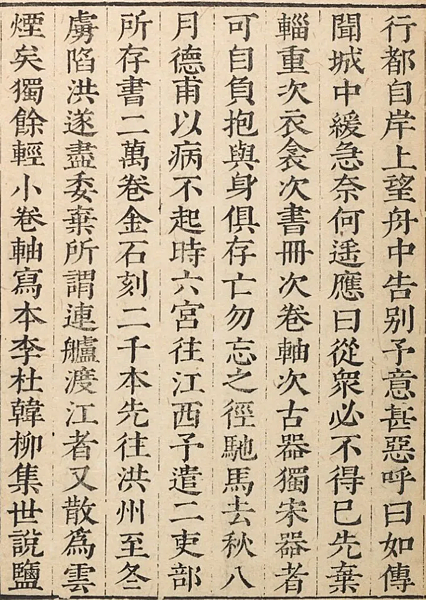 行都自岸上望舟中告别予意甚惡呼曰如傳
聞城中緩急奈何遥應曰從衆必不得已先棄
輜重次衣衾次書冊次卷軸次古器獨宋器者
可自負抱與身俱存亡勿忘之徑馳馬去秋八
月德甫以病不起時六宮往江西予遣二吏部
所存書二萬卷金石刻二千本先往洪州至冬
虜陷洪遂盡委棄所謂連艫渡江者又散為雲
煙矣獨餘輕小卷軸寫本李杜韓柳集世說鹽